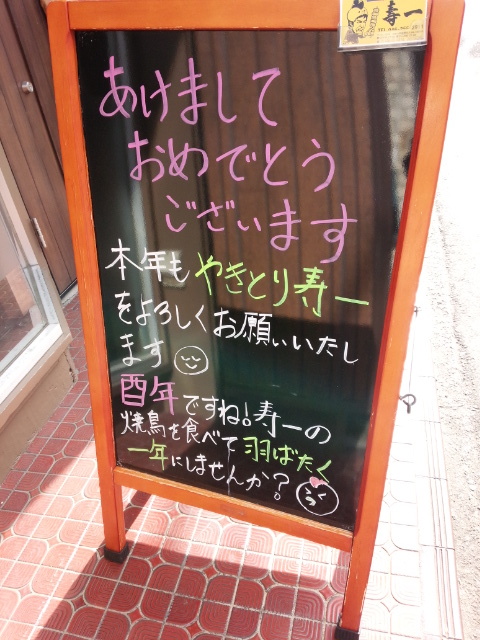 寿一
あけまして
おめでとう
ございます
本年も やきとり寿一
をよろしくお願いいたし
ます
酉年ですね!寿一の
焼鳥を食べて羽ばたく
一年にしませんか?